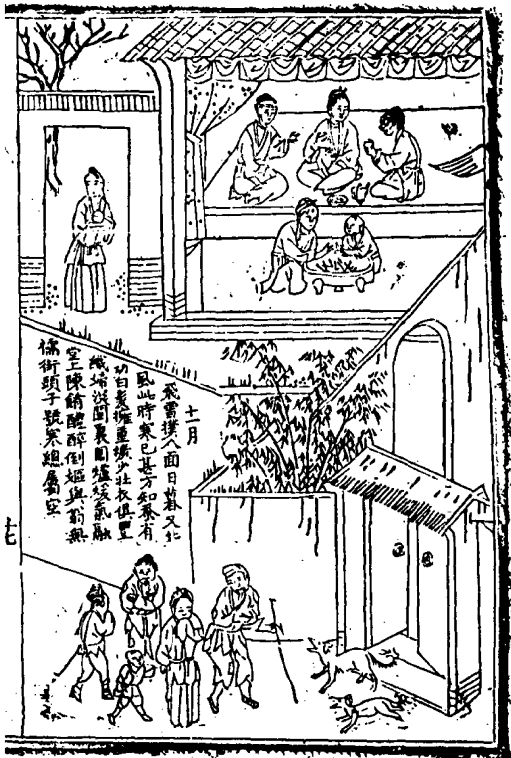 十一月
飛雪撲人面日暮又北
風此時寒已甚方知蚕有
功白髮擁重纊少壯衣俱豐
織婦深閨裏圍爐煖氣融
堂上陳餚醴醉倒嫗與翁無
襦街頭子號寒總屬空